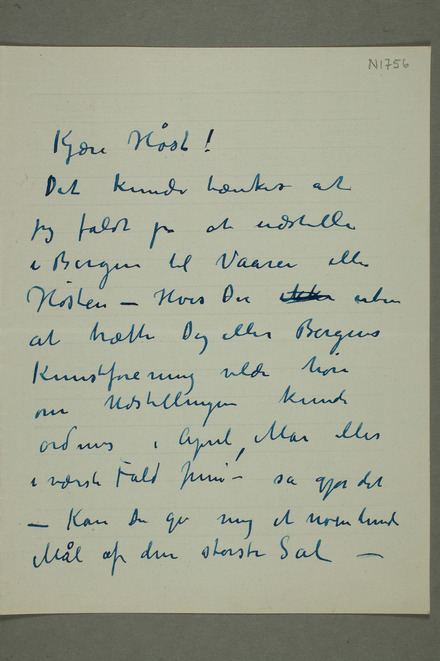 N1756
Kjære Høst!
Det kunde tænkes at
jeg faldt på at udstille
i Bergen til Vaaren eller
Høsten – Hvis Du ikke uden
at trætte Dig eller Bergens
Kunstforening vilde høre
om Udstillingen kunde
ordnes i April, Mai eller
i værste Fald Juni – så gjør det
– Kan Du gi mig et nogenlunde
Mål af den største Sal –